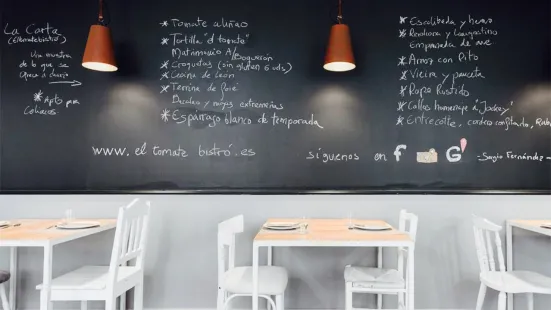 La Carta
(Eltomatebistró)
Una muestra
de lo que se
ofrece a diario
* Apto para
celiacos.
* Tomate aliñao
* Tortilla "el tomate"
Matrimonio A/Boquerón
* Croquetas (sin gluten 6 uds)
* Cecina de León
* Terrina de foie
Bacalao y migas extremeñas
* Espárrago blanco de temporada
* Escalibada y huevo
* Empanada de
* Arroz con Pito
* Vieira y panceta
* Rape Rustido
* Callos homenaje a "Jockey"
* Entrecotte, cordero confitado, Rabo
www.eltomatebistró.es
síguenos en f G
Sergio Fernández